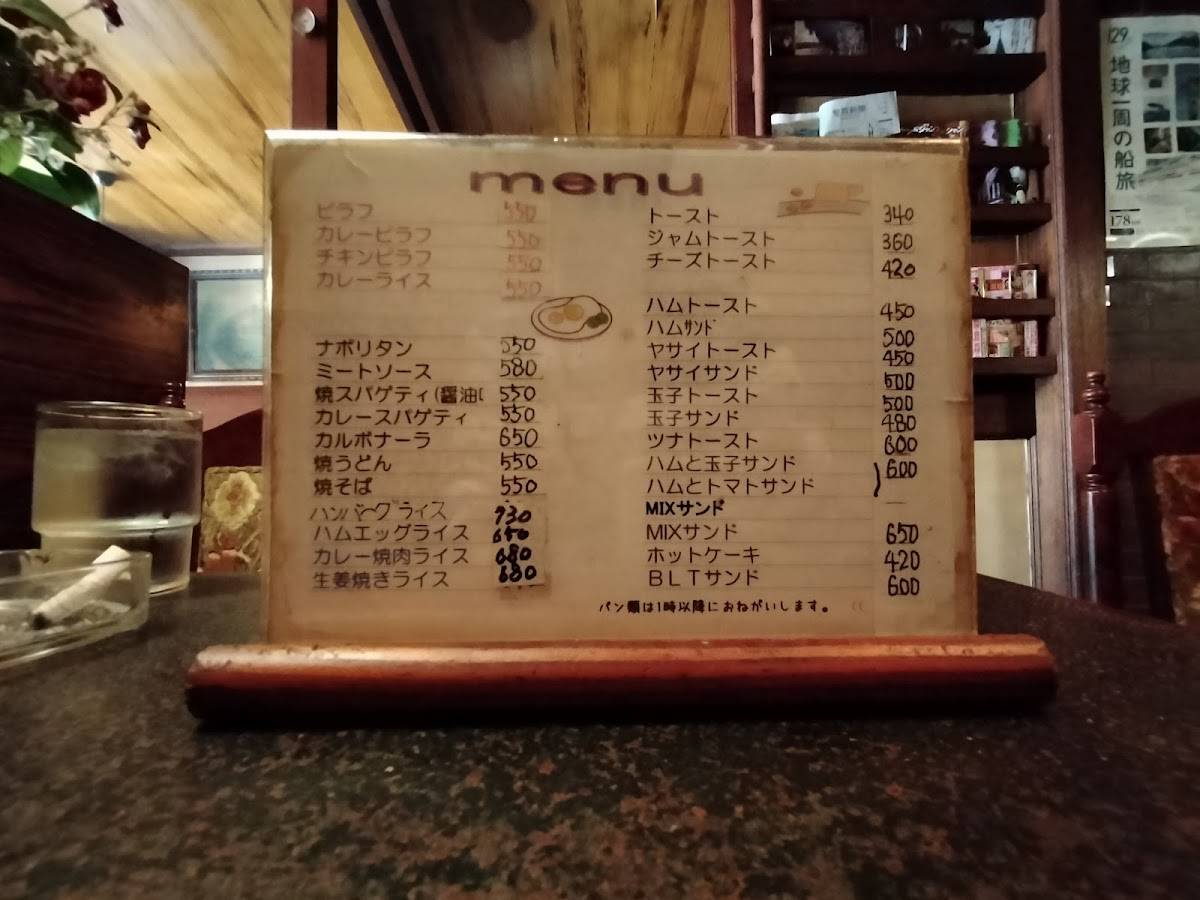 menu
ピラフ 550
カレーピラフ 550
チキンピラフ 550
カレーライス 550
ナポリタン 550
ミートソース 580
焼スパゲティ(醤油 550
カレースパゲティ 550
カルボナーラ 650
焼うどん 550
焼そば 550
ハンバーグライス 730
ハムエッグライス 650
カレー焼肉ライス 680
生姜焼きライス 680
トースト 340
ジャムトースト 360
チーズトースト 420
ハムトースト 450
ハムサンド 500
ヤサイトースト 450
ヤサイサンド 500
玉子トースト 500
玉子サンド 480
ツナトースト 600
ハムと玉子サンド 600
ハムとトマトサンド
MIXサンド
MIXサンド 650
ホットケーキ 420
BLTサンド 600
パン類は1時以降におねがいします。
129
地球一周の船旅
178